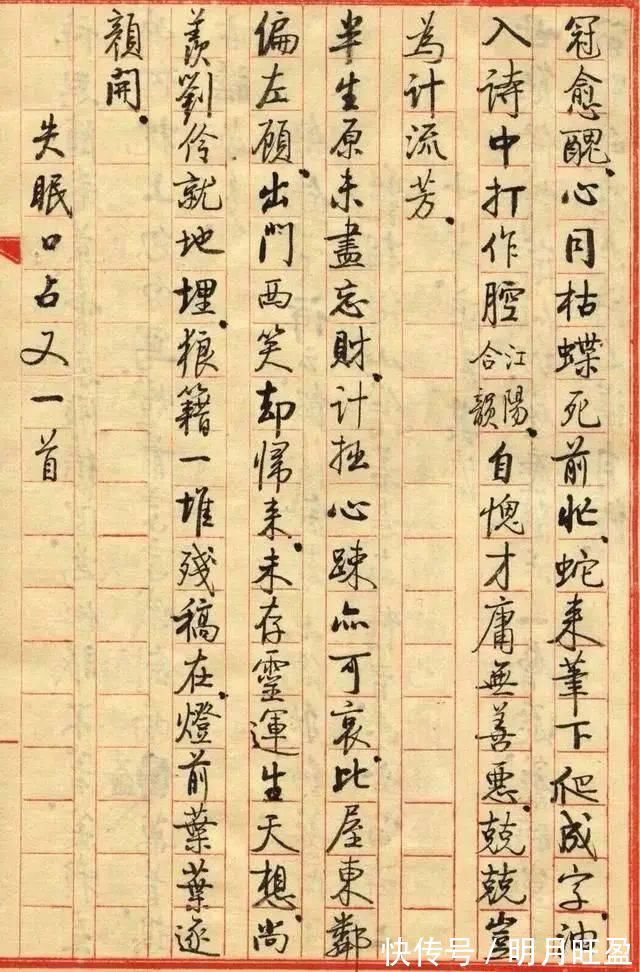 冠愈醜．心同枯蝶死前忙．蛇来筆下爬成字．油
入诗中打作腔江陽合韻．自愧才庸無善惡．兢兢豈
為计流芳．
半生原未盡忘财．计拙心踈亦可哀．比屋東鄰
偏左顾．出門西笑却帰来．未存靈運生天想．尚
羡劉伶就地埋．狼籍一堆殘稿在．燈前葉葉逐
顔開．
失眠口占又一首
快传号／明月旺盈